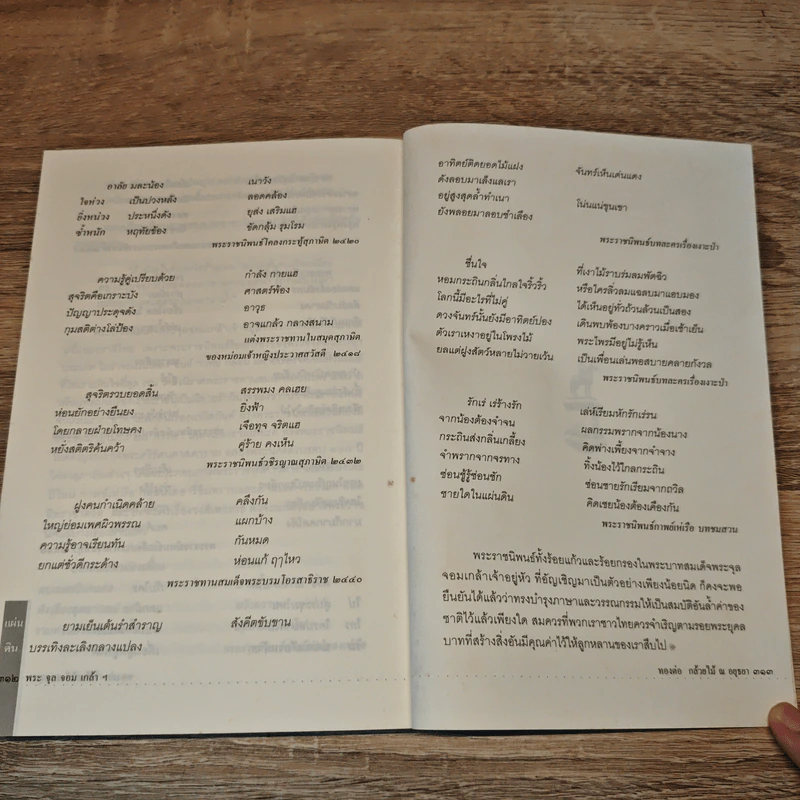 อาลัย มละน้อง เนาวัง
ใจห่วง เป็นปวงหลัง ลอดคล้อง
อิ่งหน่วง ประหนึ่งดัง ยุส่ง เสริมแฮ
ซ้ำหนัก หฤทัยข้อง ขัดกลุ้ม รุมโรม
พระราชนิพนธ์โคลงกระทู้สุภาษิต ๒๔๒๐
ความรู้คู่เปรียบด้วย กำลัง กายแฮ
สุจริตคือเกราะบัง ศาสตร์พ้อง
ปัญญาประดุจดัง อาวุธ
กุมสติต่างโล่ป้อง อาจแกล้ว กลางสนาม
แต่งพระราชทานในสมุดสุภาษิต
ของหม่อมเจ้าหญิงประวาศสวัสดี ๒๔๑๘
สุจริตรวบยอดสิ้น สรรพมง คลเฮย
ห่อนยักอย่างยืนยง ยิ่งฟ้า
โดยกลายฝ่ายโทษคง เจือทุจ จริตแฮ
หยั่งสติตริค้นคว้า คู่ร้าย คงเห็น
พระราชนิพนธ์วชิรญาณสุภาษิต ๒๔๓๒
ฝูงคนกำเนิดคล้าย คลึงกัน
ใหญ่ย่อมเพศผิวพรรณ แผกบ้าง
ความรู้อาจเรียนทัน กันหมด
ยกแต่ชั่วดีกระด้าง ห่อนแก้ ฤๅไหว
พระราชทานสมเด็จพระบรมโอรสาธิราช ๒๔๔๐
ยามเย็นเต้นรำสำราญ สังคีตขับขาน
บรรเทิงละเลิงกลางแปลง
แผ่น
ดิน
๓๑๒ พระ จุล จอม เกล้า ฯ
อาทิตย์ติดยอดไม้แฝง จันทร์เห็นเด่นแดง
ดังลอบมาเล็งแลเรา
อยู่สูงสุดล้ำทำเนา โน่นแน่ขุนเขา
ยังพลอยมาลอบชำเลือง
พระราชนิพนธ์บทละครเรื่องเงาะป่า
ชื่นใจ ที่เงาไม้ราบร่มลมพัดฉิว
หอมกระถินกลิ่นไกลใจริ้วริ้ว หรือใครลิ่วลมแฉลบมาแอบมอง
โลกนี้มีอะไรที่ไม่คู่ ได้เห็นอยู่ทั่วถ้วนล้วนเป็นสอง
ดวงจันทร์นั้นยังมีอาทิตย์ปอง เดินพบพ้องบางคราวเมื่อเช้าเย็น
ตัวเราเหงาอยู่ในไพรงไม้ พระไพรมีอยู่ไม่รู้เห็น
ยลแต่ฝูงสัตว์หลายไม่วายเว้น เป็นเพื่อนเล่นพอสบายคลายกังวล
พระราชนิพนธ์บทละครเรื่องเงาะป่า
รักเร่ เร่ร้างรัก เล่ห์เรียมหักรักเร่รน
จากน้องต้องจำจน ผลกรรมพรากจากน้องนาง
กระถินส่งกลิ่นเกลี้ยง คิดพ่างเพี้ยงจากจำจาง
จำพรากจากจรทาง ทิ้งน้องไว้ไกลกระถิน
ซ่อนชู้รู้ซ่อนชัก ซ่อนชายรักเรียมจากถวิล
ชายใดในแผ่นดิน คิดเชยน้องต้องเคืองกัน
พระราชนิพนธ์กาพย์เห่เรือ บทชมสวน
พระราชนิพนธ์ทั้งร้อยแก้วและร้อยกรองในพระบาทสมเด็จพระจุล
จอมเกล้าเจ้าอยู่หัว ที่อัญเชิญมาเป็นตัวอย่างเพียงน้อยนิด ก็คงจะพอ
ยืนยันได้แล้วว่าทรงบำรุงภาษาและวรรณกรรมให้เป็นสมบัติอันล้ำค่าของ
ชาติไว้แล้วเพียงใด สมควรที่พวกเราชาวไทยควรจำเริญตามรอยพระยุคล
บาทที่สร้างสิ่งอันมีคุณค่าไว้ให้ลูกหลานของเราสืบไป
ทองต่อ กล้วยไม้ ณ อยุธยา ๓๑๓